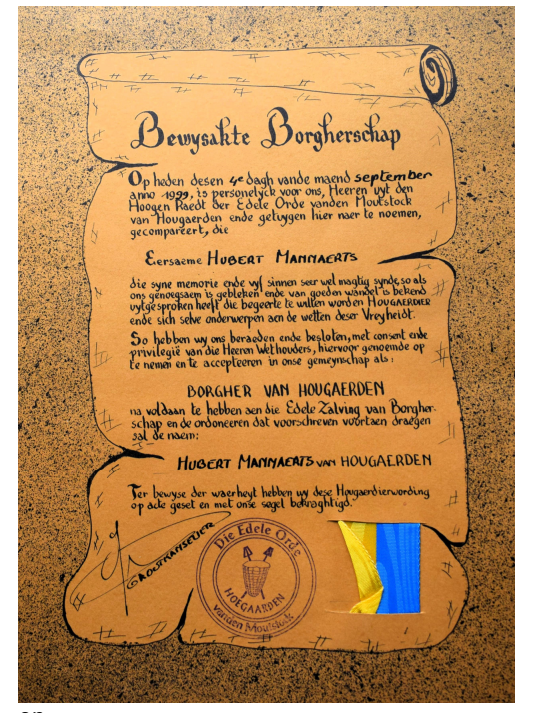 Bewysakte Borgherschap
Op heden desen 4e dagh vande maend september
anno 1999, is personelyck voor ons, Heeren uyt den
Hoogen Raedt der Edele Orde vanden Moutstock
van Hougaerden ende getuygen hier naer te noemen,
gecompareert, die
Eersaeme HUBERT MANNAERTS
die syne memorie ende vyf sinnen seer wel magtig synde, so als
ons genoegsaem is gebleken ende van goeden wandel is bekend
uytgesproken heeft die begeerte te willen worden HOUGAERDIER
ende sich selve onderwerpen aen de wetten deser Vreyheidt.
So hebben wy ons beraeden ende besloten, met consent ende
privilegie van die Heeren Wethouders, hiervoor genoemde op
te nemen en te accepteeren in onse gemeynschap als:
BORGHER VAN HOUGAERDEN
na voldaan te hebben aen die Edele Zalving van Borgher-
schap en de ordoneeren dat voorschreven voortaen draegen
sal de naem:
HUBERT MANNAERTS VAN HOUGAERDEN
Ter bewyse der waerheyt hebben wy dese Hougaerdierwording
op acte geset en met onse segel bekraghtigd.
Die Edele Orde
HOEGAARDEN
vanden Moutstock